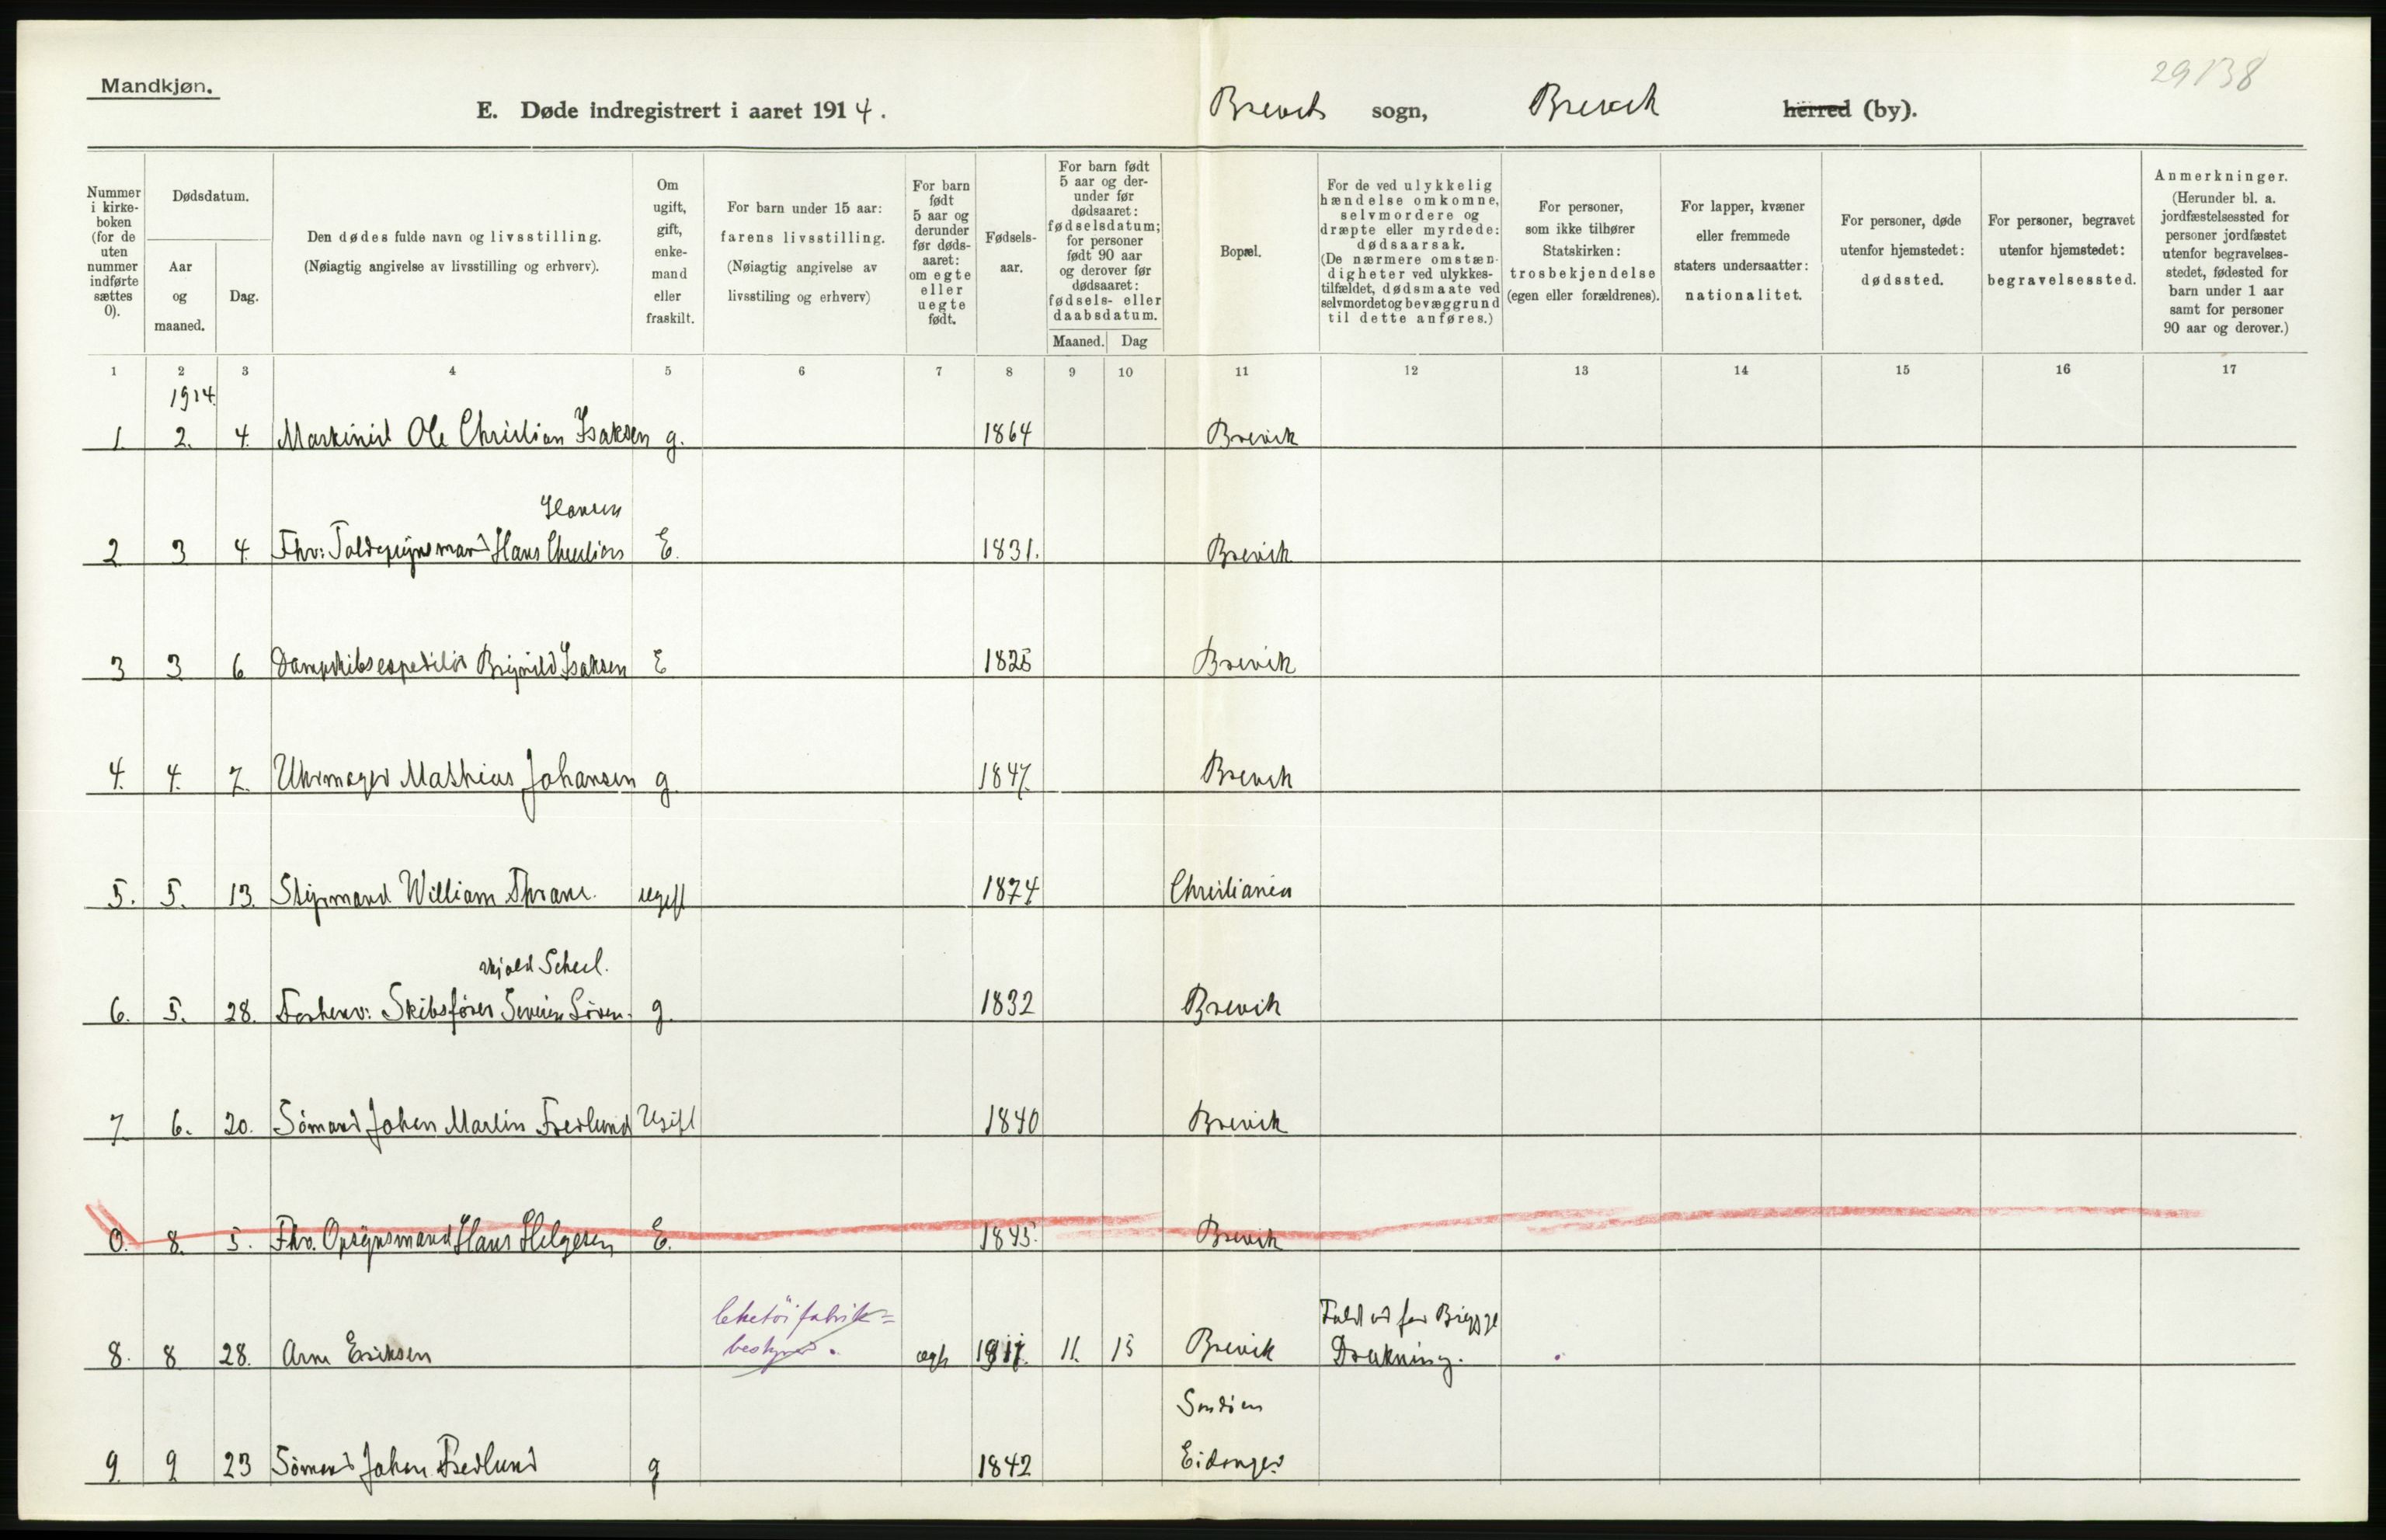 29138
Mandkjøn.
E. Døde indregistrert i aaret 1914.
Brevik sogn, Brevik herred (by).
Nummer i kirkeboken (for de uten nummer indførte sættes 0).
Dødsdatum.
Aar og maaned.
Dag.
Den dødes fulde navn og livsstilling.
(Nøiagtig angivelse av livsstilling og erhverv).
Om ugift, gift, enkemand eller fraskilt.
For barn under 15 aar:
farens livsstilling.
(Nøiagtig angivelse av
livsstiling og erhverv)
For barn født 5 aar og derunder før dødsaaret: om egte eller uegte født.
Fødselsaar.
For barn født 5 aar og derunder før dødsaaret: fødselsdatum; for personer født 90 aar og derover før dødsaaret: fødsels- eller daabsdatum.
Maaned. Dag
Bopæl.
For de ved ulykkelig hændelse omkomne, selvmordere og dræpte eller myrdede: dødsaarsak.
(De nærmere omstændigheter ved ulykkestilfældet, dødsmaate ved selvmordet og bevæggrund til dette anføres.)
For personer, som ikke tilhører Statskirken: trosbekjendelse (egen eller forældrenes).
For lapper, kvæner eller fremmede staters undersaatter: nationalitet.
For personer, døde utenfor hjemstedet: dødssted.
For personer, begravet utenfor hjemstedet: begravelsessted.
Anmerkninger.
(Herunder bl. a. jordfæstelsessted for personer jordfæstet utenfor begravelsesstedet, fødested for barn under 1 aar samt for personer 90 aar og derover.)
1 2 3 4 5 6 7 8 9 10 11 12 13 14 15 16 17
1914.
1. 2. 4. Maskinist Ole Christian Isaksen g. 1864 Brevik
Hansen
2 3 4. Fhv: Toldopsynsmand Hans Christian E. 1831. Brevik
3 3 6 Dampskibsexpeditör Brynild Isaksen E 1825 Brevik
4. 4. 7. Uhrmager Mathias Johansen g. 1847. Brevik
5. 5. 13. Styrmand William Thrane. ugift 1874 Christiania
skjold Scheel.
6. 5. 28. Forhenv: Skibsfører Severin Søren- g. 1832 Brevik
7. 6. 20. Sømand Johan Martin Fredlund Ugift 1840 Brevik
0. 8. 5. Fhv. Opsynsmand Hans Helgesen E. 1845. Brevik
leketöifabrik=
Fald ud fra Brygge
8. 8 28. Arne Eriksen bestyrer. egte 1911. 11. 15 Brevik Drukning.
Sndöen
9. 9 23 Sømand Johan Fredlund g 1842 Eidanger